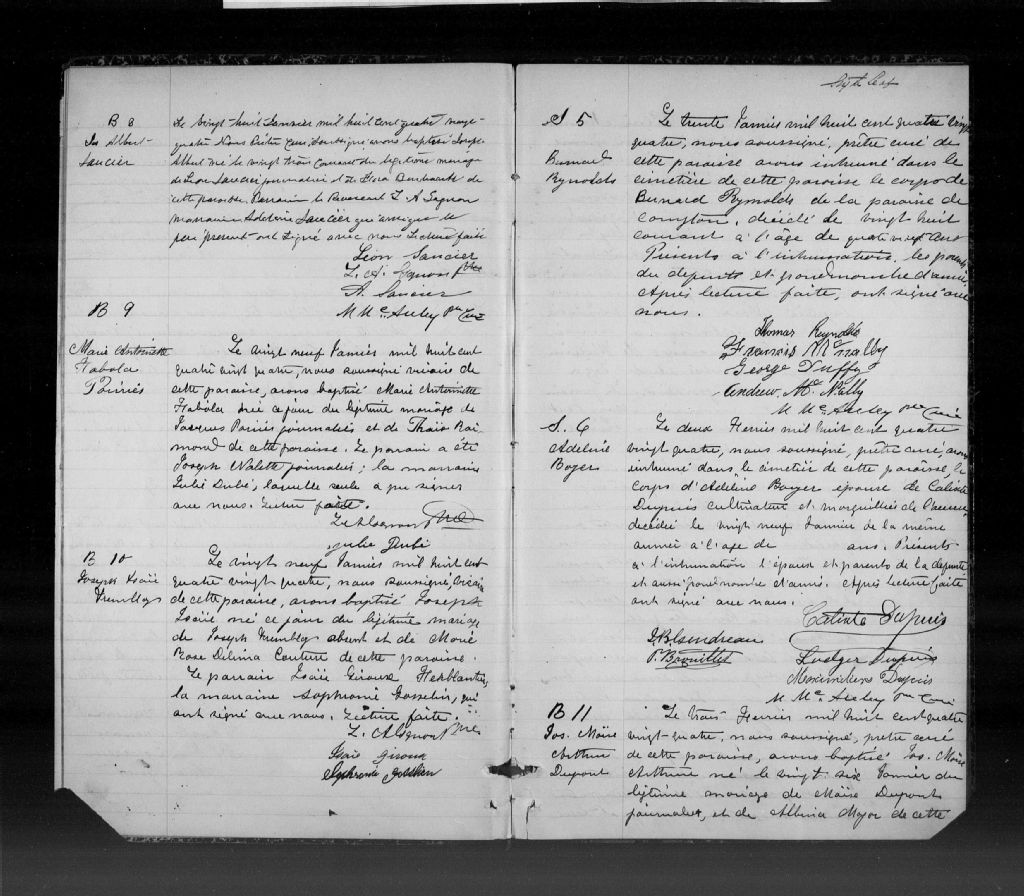 B 8
Jos Albert
Saucier
Le vingt huit Janvier mil huit cent quatre vingt-
quatre Nous Prêtre Curé Soussigné avons baptisé Joseph
Albert né le vingt trois Courant du légitime mariage
de Léon Saucier journalier et de Flora de
cette paroisse. Parrain le Reverend L. A Gagnon
marraine Saucier qui ainsi que le
père présent ont signé avec nous Lecture faite
Léon Saucier
L. A. Gagnon ptre
A. Saucier
M Mc Auley Ptre Curé
B 9
Marie Antoinette
Habola
Poiriés
Le vingt neuf Janvier mil huit cent
quatre vingt quatre, nous soussigné vicaire de
cette paroisse, avons baptisé Marie Antoinette
Habola née ce jour du légitime mariage de
Jacques Poiriés journalier et de Thaïs Rai
mond de cette paroisse. Le parrain a été
Joseph Nolette journalier; la marraine
Julie Dubé, laquelle seule a pu signer
avec nous. Lecture faite.
Julie Dubé
B 10
Joseph Isaïe
Tremblay
Le vingt neuf Janvier mil huit cent
quatre vingt-quatre, nous soussigné, vicaire
de cette paroisse, avons baptisé Joseph
Isaïe né ce jour du légitime mariage
de Joseph Tremblay absent et de Marie
Rose Delima Couture de cette paroisse.
Le parrain Isaïe Giroux Ferblantier,
la marraine Sophronie Gosselin, qui
ont signé avec nous. Lecture faite.
Isaïe Giroux
Sophronie Gosselin
S 5
Bernard
Rynolds
Le trente Janvier mil huit cent quatre vingt
quatre, nous soussigné, prêtre curé de
cette paroisse avons inhumé dans le
cimetière de cette paroisse le corps de
Bernard Rymolds de la paroisse de
Compton, décédé le vingt huit
courant à l'âge de quatre vingt ans
Présents à l'inhumation, les parents
du defunts et grand nombre d'amis.
Après lecture faite, ont signé avec
nous.
Thomas Reynolds
Francis McNally
George Duffy
Andrew. Mc Nally
M Mc Auley ptre Curé
S. 6
Adeline
Boyer
Le deux Fevrier mil huit cent quatre
vingt quatre, nous soussigné, prêtre curé, avons
inhumé dans le cimetière de cette paroisse, le
corps d'Adeline Boyer épouse de Calixte
Dupuis cultivateur et marguillier de l'oeuvre,
décédée le vingt neuf Janvier de la même
année à l'age de ans. Présents
à l'inhumation l'époux et parents de la defunte
et aussi grand nombre d'amis. Après lecture faite
ont signé avec nous.
Calixte Dupuis
J. B. Gendreau
P. Brouillet
Ludger Dupuis
Maximilien Dupuis
M. Mc Auley ptre Curé
B 11
Jos. Moïse
Arthur
Dupont
Le trois Fevrier mil huit cent quatre
vingt-quatre, nous soussigné, prêtre curé
de cette paroisse, avons baptisé Jos. Moïse
Arthur né le vingt six Janvier du
légitime mariage de Moïse Dupont
journalier, et de Albina Major de cette